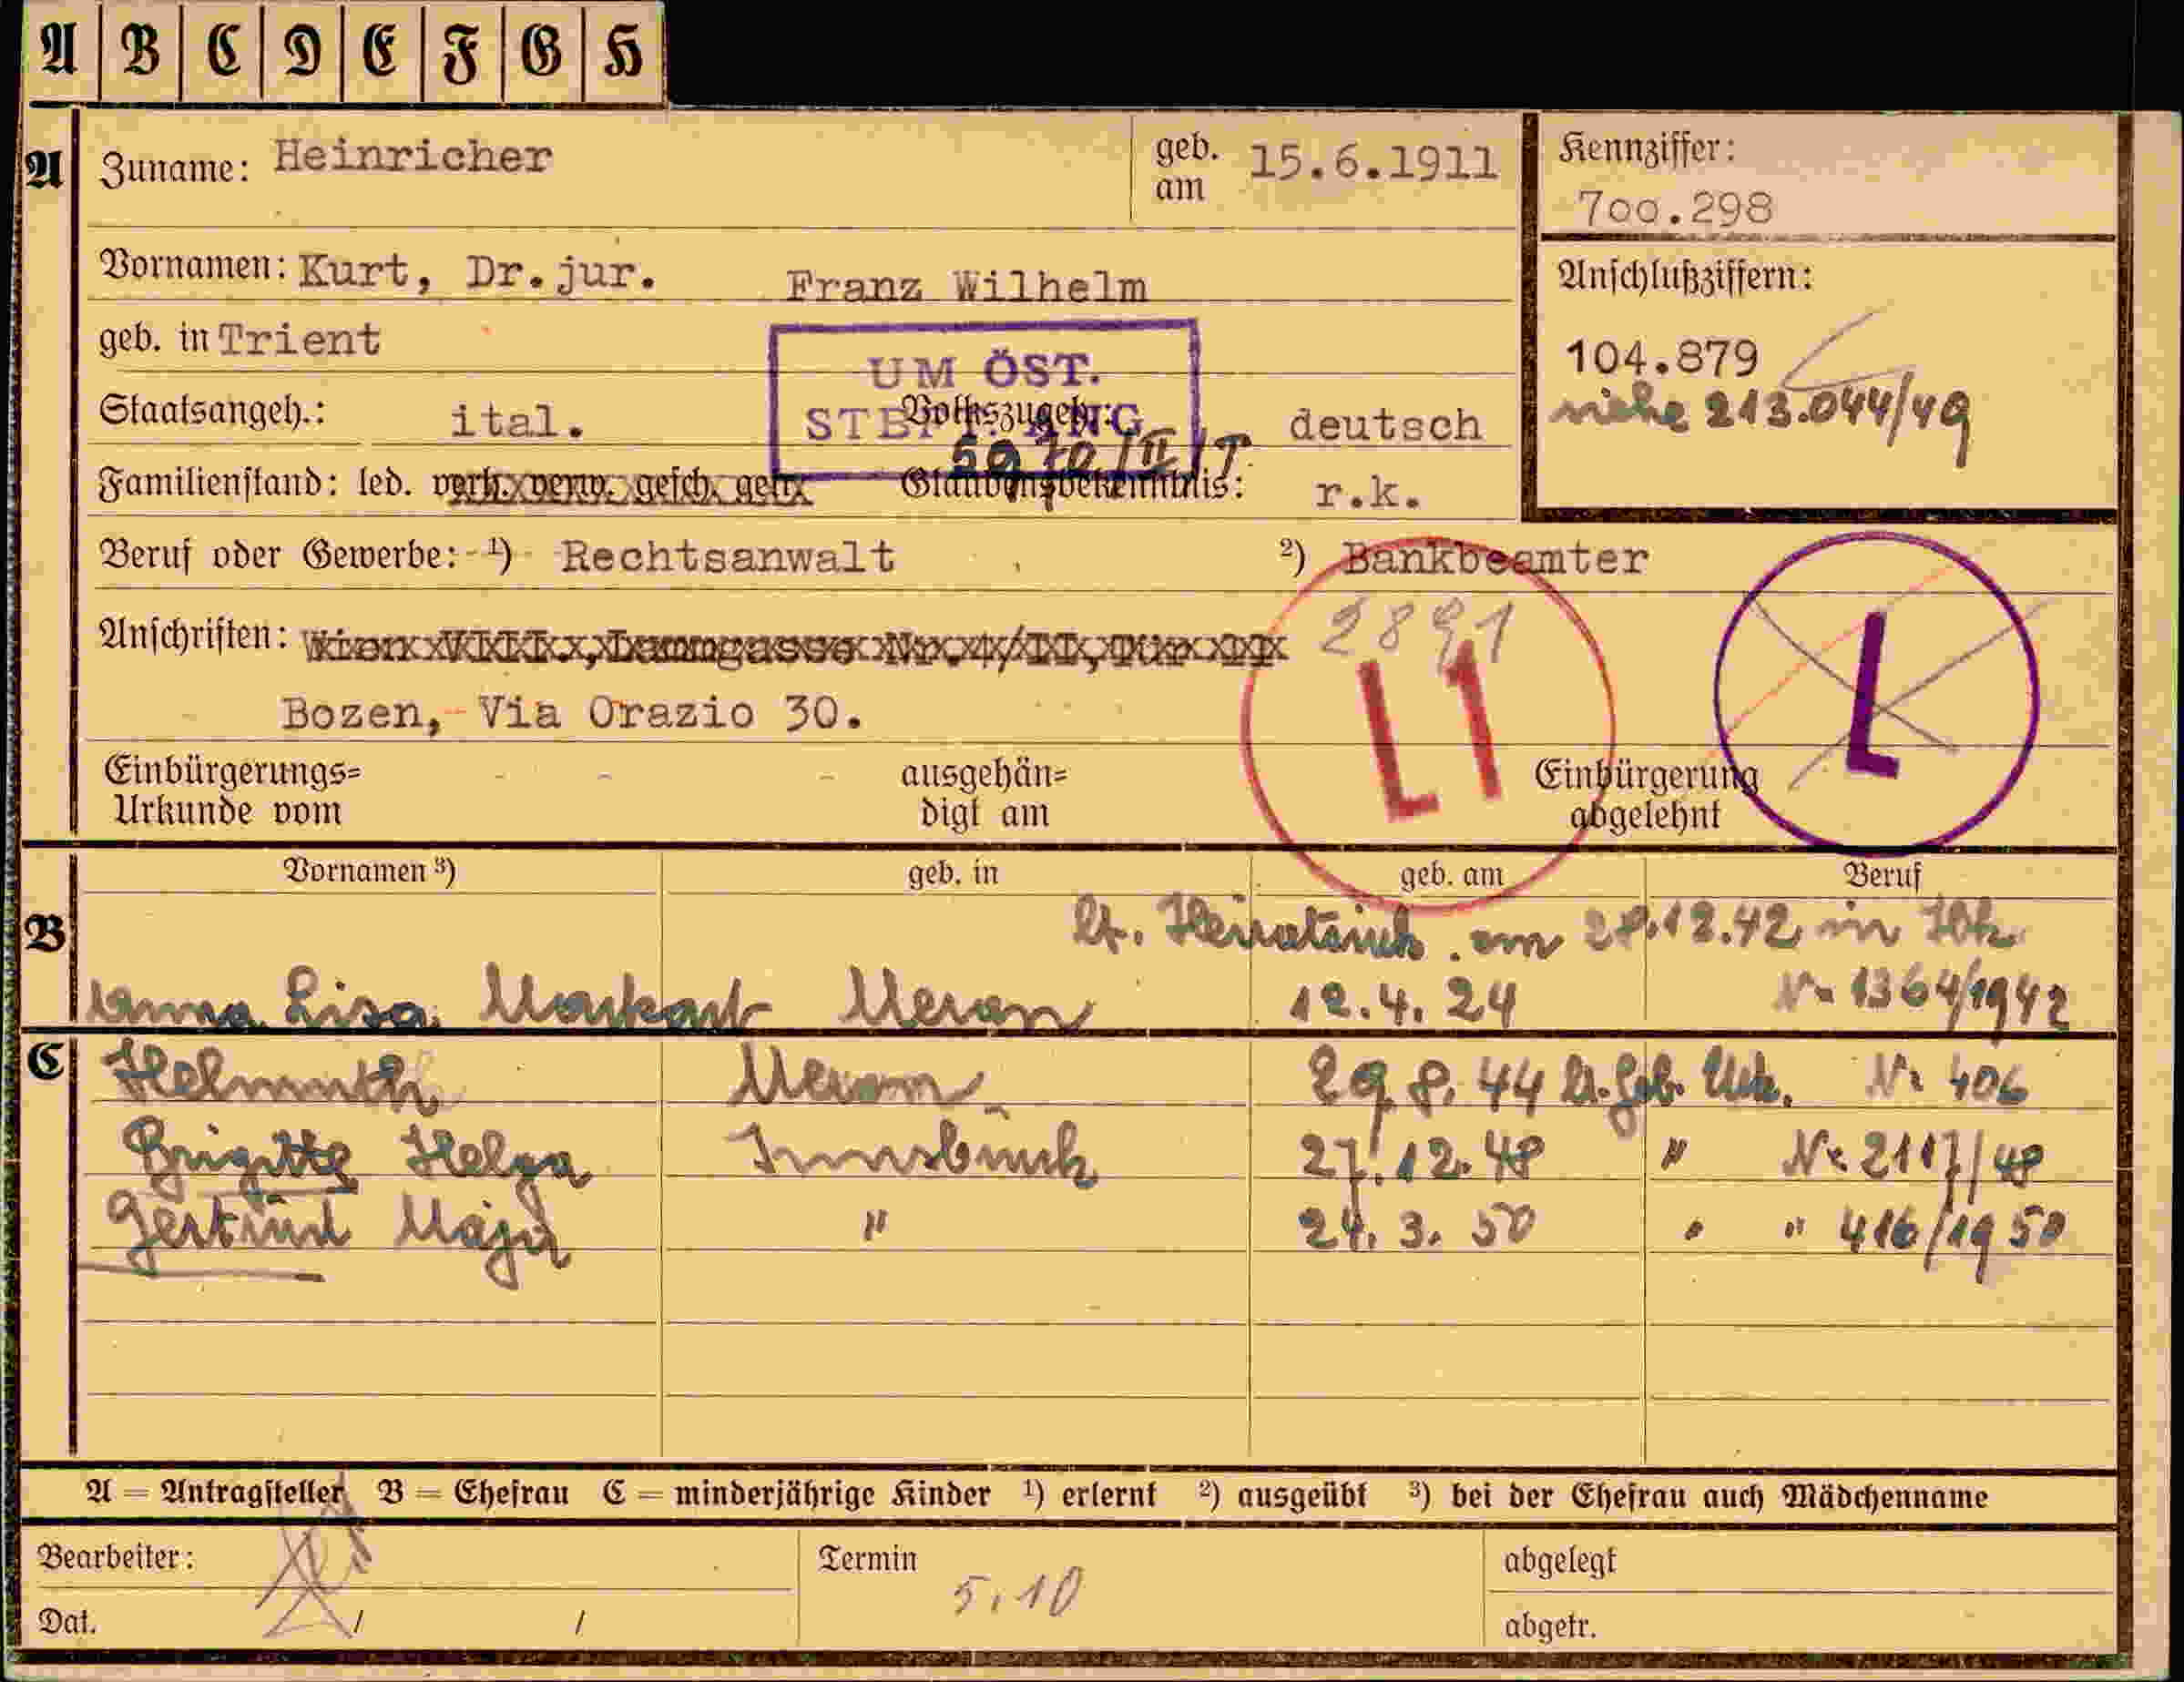 A B C D E F G H
A Zuname: Heinricher geb. am 15.6.1911
Kennziffer: 7oo.298
Vornamen: Kurt, Dr.jur. Franz Wilhelm
Anschlußziffern:
geb. in Trient
104.879
siehe 213.044/49
UM ÖST.
Staatsangeh.: ital. Volkszugeh.: deutsch
Familienstand: led. verh. verw. gesch. getr. Glaubensbekenntnis: r.k.
Beruf oder Gewerbe: ¹) Rechtsanwalt ²) Bankbeamter
Anschriften:
2891
L1
L
Bozen, Via Orazio 30.
Einbürgerungs=
Urkunde vom
ausgehän=
digt am
Einbürgerung
abgelehnt
Vornamen ³) geb. in geb. am Beruf
B
lt. Heiratsurk. am 28.12.42 in Ibk
Anna Lisa Markart Meran 12.4.24 Nr 1364/1942
C Helmuth Meran 29.8.44 lt. Geb. Urk. Nr 406
Brigitte Helga Innsbruck 27.12.48 " Nr. 2117/48
Gertrud Maja " 24.3.50 " " 416/1950
A = Antragsteller B = Ehefrau C = minderjährige Kinder ¹) erlernt ²) ausgeübt ³) bei der Ehefrau auch Mädchenname
Bearbeiter:
Termin 5.10
abgelegt
Dat. / /
abgetr.